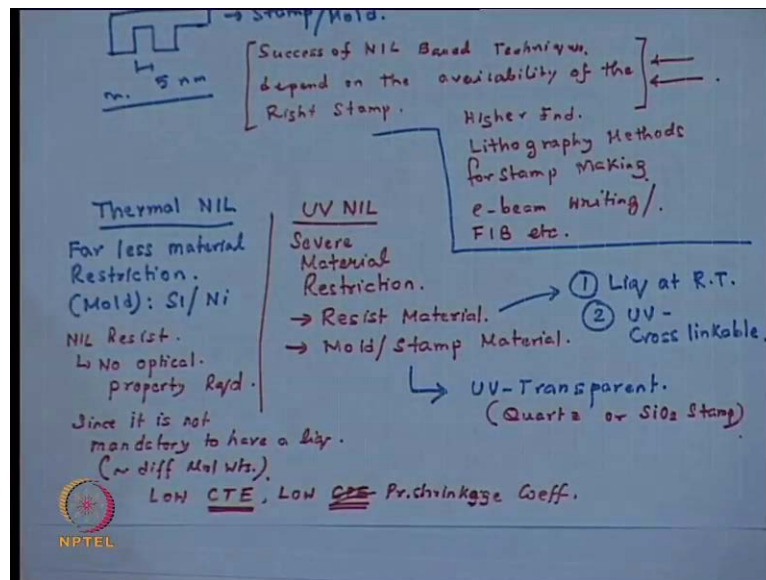 → Stamp/Mold.
5 nm
m.
[Success of NIL Based Technique.
depend on the availability of the
Right Stamp.]
Higher End.
Lithography Methods
for stamp Making.
e-beam Writing/.
FIB etc.
Thermal NIL
Far less material
Restriction.
(Mold): Si/Ni
NIL Resist.
↳ No optical.
property Reqd.
Since it is not
mandatory to have a liq.
(~ diff Mol Wts.)
Low CTE, Low Pr. shrinkage Coeff.
UV NIL
Severe
Material
Restriction.
→ Resist Material.
→ Mold/Stamp Material.
① Liq at R.T.
② UV-
Cross linkable.
UV-Transparent.
(Quartz or SiO2 Stamp)
NPTEL